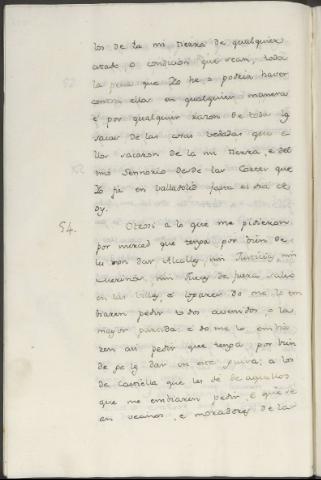 los de la mi tierra de qualquier
estado o condicion que sean, toda
la pena que Yo he o podria haver
contra ellos en qualquier manera
e por qualquier razon de toda la
saca de las cosas vedadas que e
llos sacaron de la mi tierra, e del
mio Sennorio desde las Cortes que
Yo fiz en Valladolid fasta el dia de
oy.
54. Otrosi a lo que me pidieron
por merced que tenga por bien de
les non dar Alcalles, nin Justicias, nin
Merinos, nin Juez de fuera salvo
en las Villas, e logares do me lo em
biaren pedir todos avenidos o la
mayor partida e do me lo embia
ren asi pedir que tenga por bien
de ge lo dar en esta guisa; a los
de Castiella que les dé de aquellos
que me embiaren pedir, e que se
an vecinos, e moradores de la